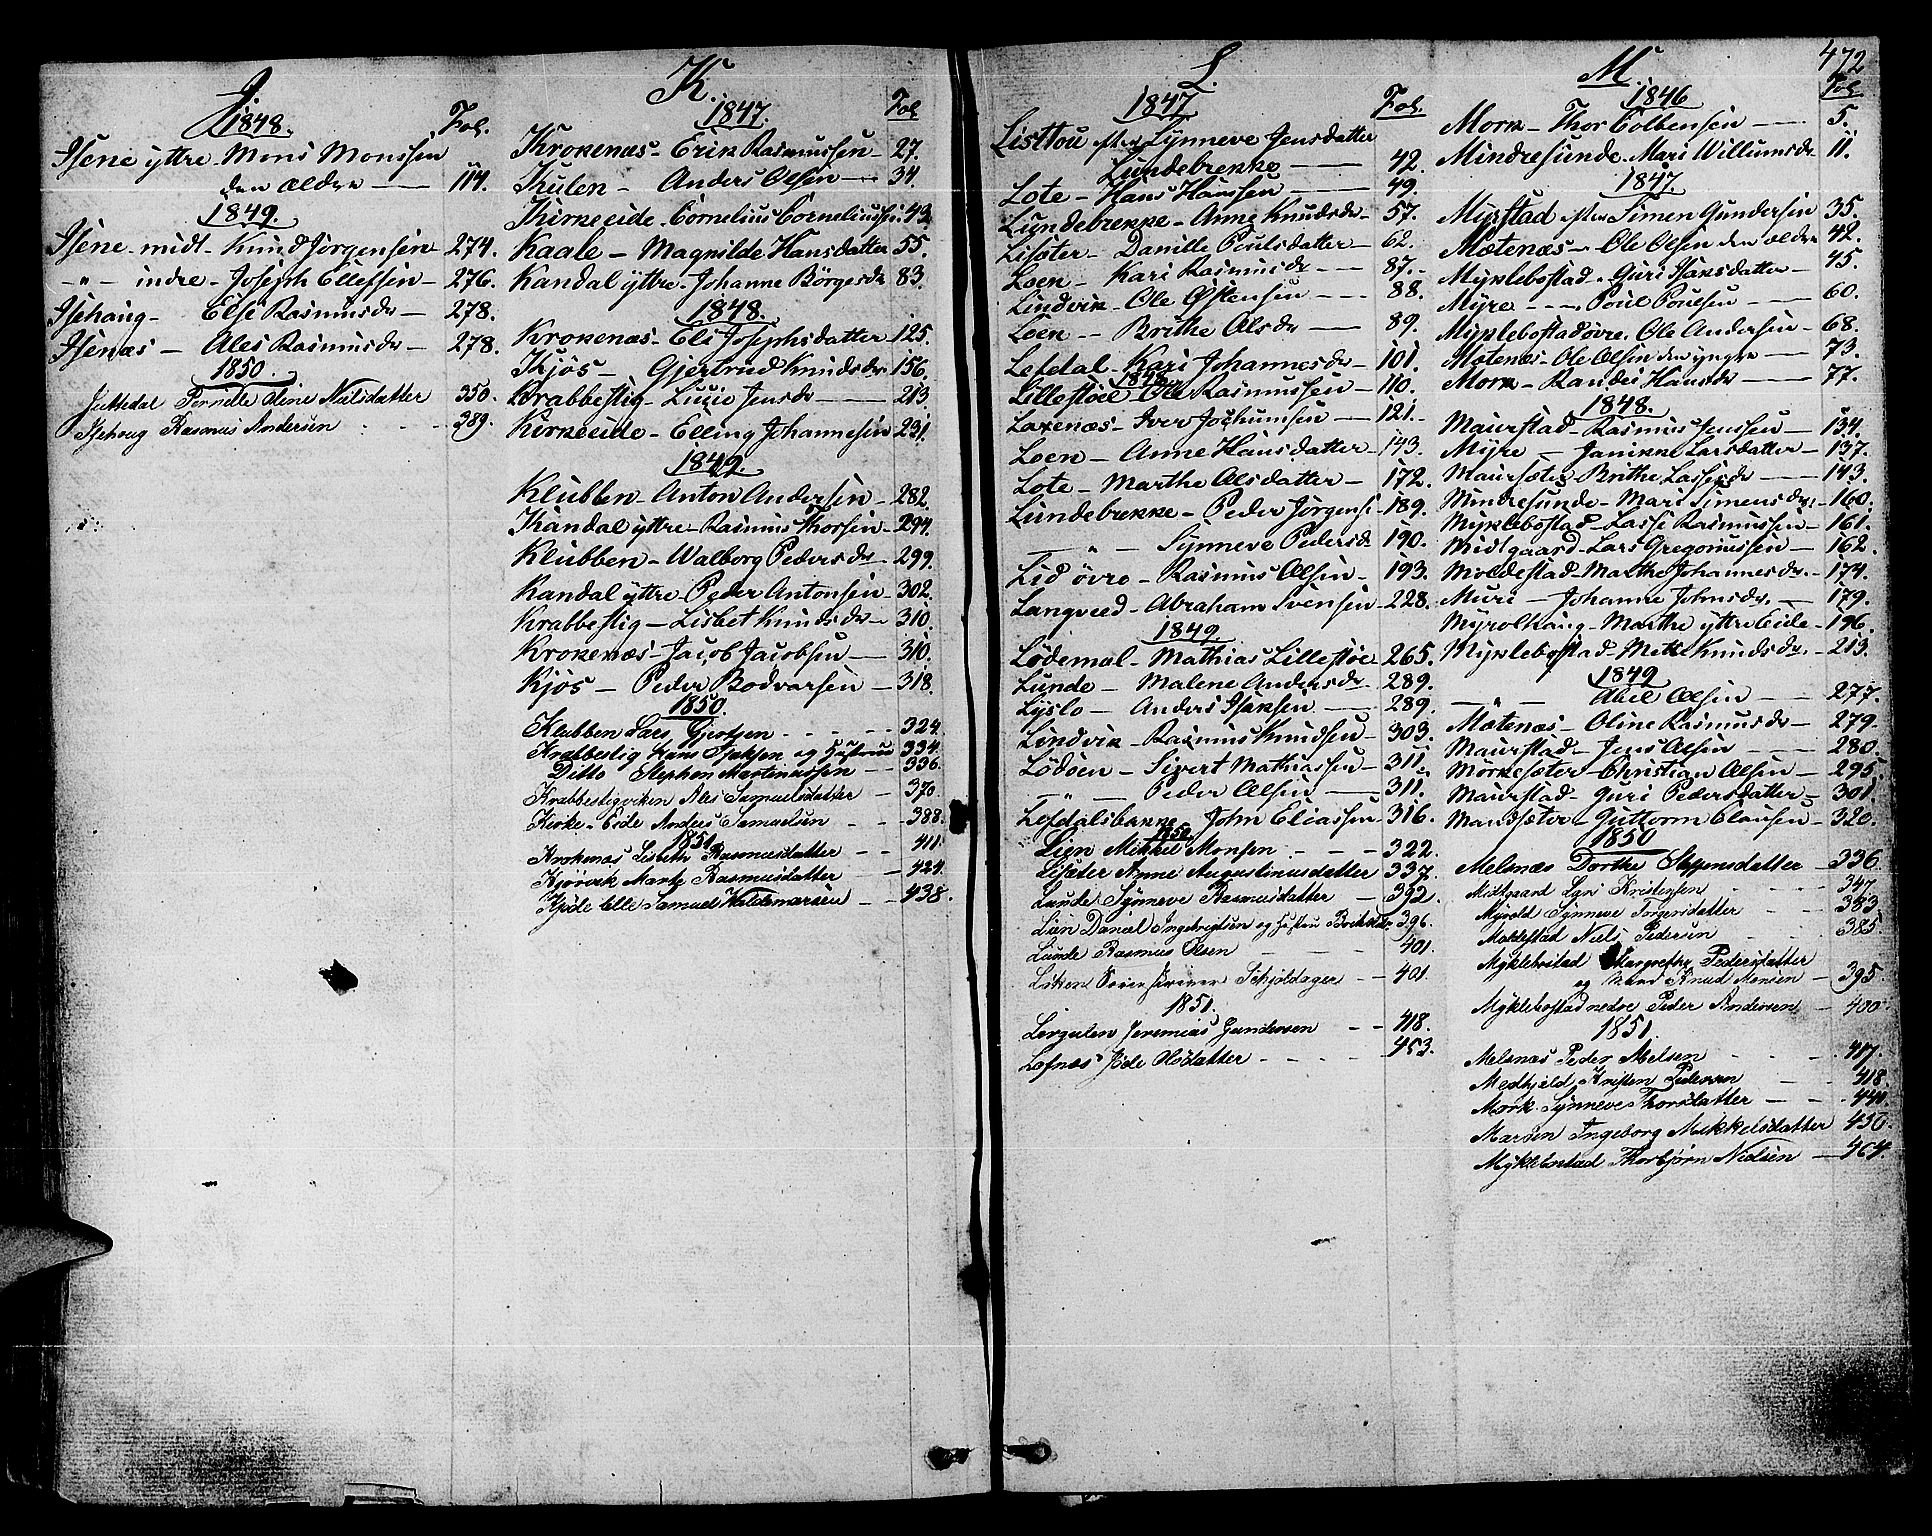 J.
1848. Fol.
Isene yttre - Mons Monssen
den ældre — 114.
1849.
Isene midt - Knud Jørgensen - 274.
- " - indre - Joseph Ellefsen - 276.
Isehaug - Else Rasmusdr - 278.
Isenæs - Ales Rasmusdr - 278.
1850.
Juttedal Pernelle Oline Nilsdatter 350.
Isehoug Rasmus Andersen - - - 389.
K.
1847. Fol
Krokenæs - Erik Rasmussen - 27.
Kulen - Anders Olsen - 34.
Kirkeeide - Cornelius Corneliussen 43.
Kaale - Magnilde Hansdatter 55.
Kandal yttre - Johanne Børgesdr 83.
1848.
Krokenæs - Eli Josephsdatter 125.
Kjøs - Gjertrud Knudsdr 156.
Krabbestig - Lucie Jensdr — 213
Kirkeeide - Elling Johannesen 231.
1849.
Klubben - Anton Andersen - 282.
Kandal yttre - Rasmus Thorsen - 294.
Klubben - Walborg Pedersdr - 299.
Kandal yttre - Peder Antonsen - 302.
Krabbestig - Lisbet Knudsdr - 310.
Krokenæs - Jacob Jacobsen — 310.
Kjøs - Peder Bodvarsen - 318.
1850.
Klubben Lars Gjertsen - - - - 324.
Krabbestig Hans Isaksen og Hustrue 334.
Ditto Stephen Martinussen - - 336.
Krabbestigviken Ales Samuelsdatter - 370.
Kirke-Eide Anders Samuelsen - - 388.
1851.
Krokenæs Lisbeth Rasmusdatter - - 411.
Kjørvik Marte Rasmusdatter - - 424.
Kjøde Elle Samuel Waldemarsen - - 438.
L.
1847. Fol.
Listtou efter Synneve Jensdatter
Lundebrekke — 42.
Lote - Hans Hanssen — 49.
Lundebrekke - Anne Knudsdr - 57.
Lisæter - Danille Poulsdatter - 62.
Loen - Kari Rasmusdr - 87.
Lindvik - Ole Østensen - - - 88.
Loen - Brithe Olsdr — 89.
Lefdal - Kari Johannesdr - 101.
1848.
Lillestøel Ole Rasmussen - 110.
Laxenæs - Iver Jochumsen - - 121.
Loen - Anne Hansdatter - 143.
Lote - Marthe Olsdatter - 172.
Lundebrekke - Peder Jørgense - 189.
- " - Synneve Pedersdr 190.
Lid øvre - Rasmus Olsen - 193.
Langveed - Abraham Svensen - 228.
1849.
Lødemal - Mathias Lillestøe 265.
Lunde - Malene Andersdr - 289.
Lyslo - Anders Isaksen — 289.
Lindvik - Rasmus Knudsen - 303.
Lødøen - Sivert Mathiassen - 311.
- " - Peder Olsen — 311.
Lefdalsbakke - John Eliassen - 316.
1850
Lien Mikkel Monsen - - - 322.
Lisæter Anne Augustinusdatter 337.
Lunde Synneve Rasmusdatter - 392.
Lien Daniel Ingebrigtsen og Hustru Brithe 396.
Lunde Rasmus Olsen - - - 401.
Schjoldager - - 401.
1851.
Jeremias Gundersen - - 418.
Lofnæs Jøde Olsdatter - - - - 453.
472
M.
1846 Fol.
Mork - Thor Colbensen - - - 5.
Mindresunde - Mari Willumsdr 11.
1847.
Myrstad efter Simen Gundersen 35.
Mætenæs - Ole Olsen den ældre 42.
Myklebostad - Guri Hansdatter - 45.
Myre - - - Poul Poulsen - - - 60.
Myklebostad øvre. Ole Andersen - 68.
Mætenæs - Ole Olsen den yngre - 73.
Mork - Randei Hansdr — 77.
1848.
Maurstad - Rasmus Jenssen - 134.
Myre - Janikke Larsdatter - 137.
Maursæter Brithe Lassesdr - 143.
Mindresunde - Mari Simensdr - 160.
Myklebostad - Lasse Rasmussen - 161.
Midtgaard - Lars Gregoriussen - 162.
Moldestad - Marthe Johannesdr. - 174.
Muri - Johanne Johnsdr. - 179.
Myrolhaug - Marthe yttre Eide - 196.
Myklebostad - Mette Knudsdr. - 213.
1849
- " - Abel Olsen - - 277.
Mætenæs - Oline Rasmusdr - 279.
Maurstad - Jens Olsen — 280.
Mørkesæter - Christian Olsen - 295.
Maurstad - Guri Pedersdatter - 301.
Maursæter - Guttorm Clausen - 320.
1850
Melsnæs Dorthe Steffensdatter - 336.
Midtgaard Lars Kristensen - - - 347.
Myrold Synneve Torgersdatter - - 383
Moldestad Niels Pedersen - - 385.
Myklebstad Margrethe Pedersdatter
og Mand Knud Monsen - 395.
Myklebostad nedre Peder Andersen - 400
1851.
Melsnæs Peder Nielsen - - - 417.
Medhjeld Kristen Pedersen - - 418.
Mork. Synneve Thorsdatter - - - 440.
Marsen Ingeborg Mikkelsdatter 450.
Myklebstad Thorbjørn Nielsen — 464.